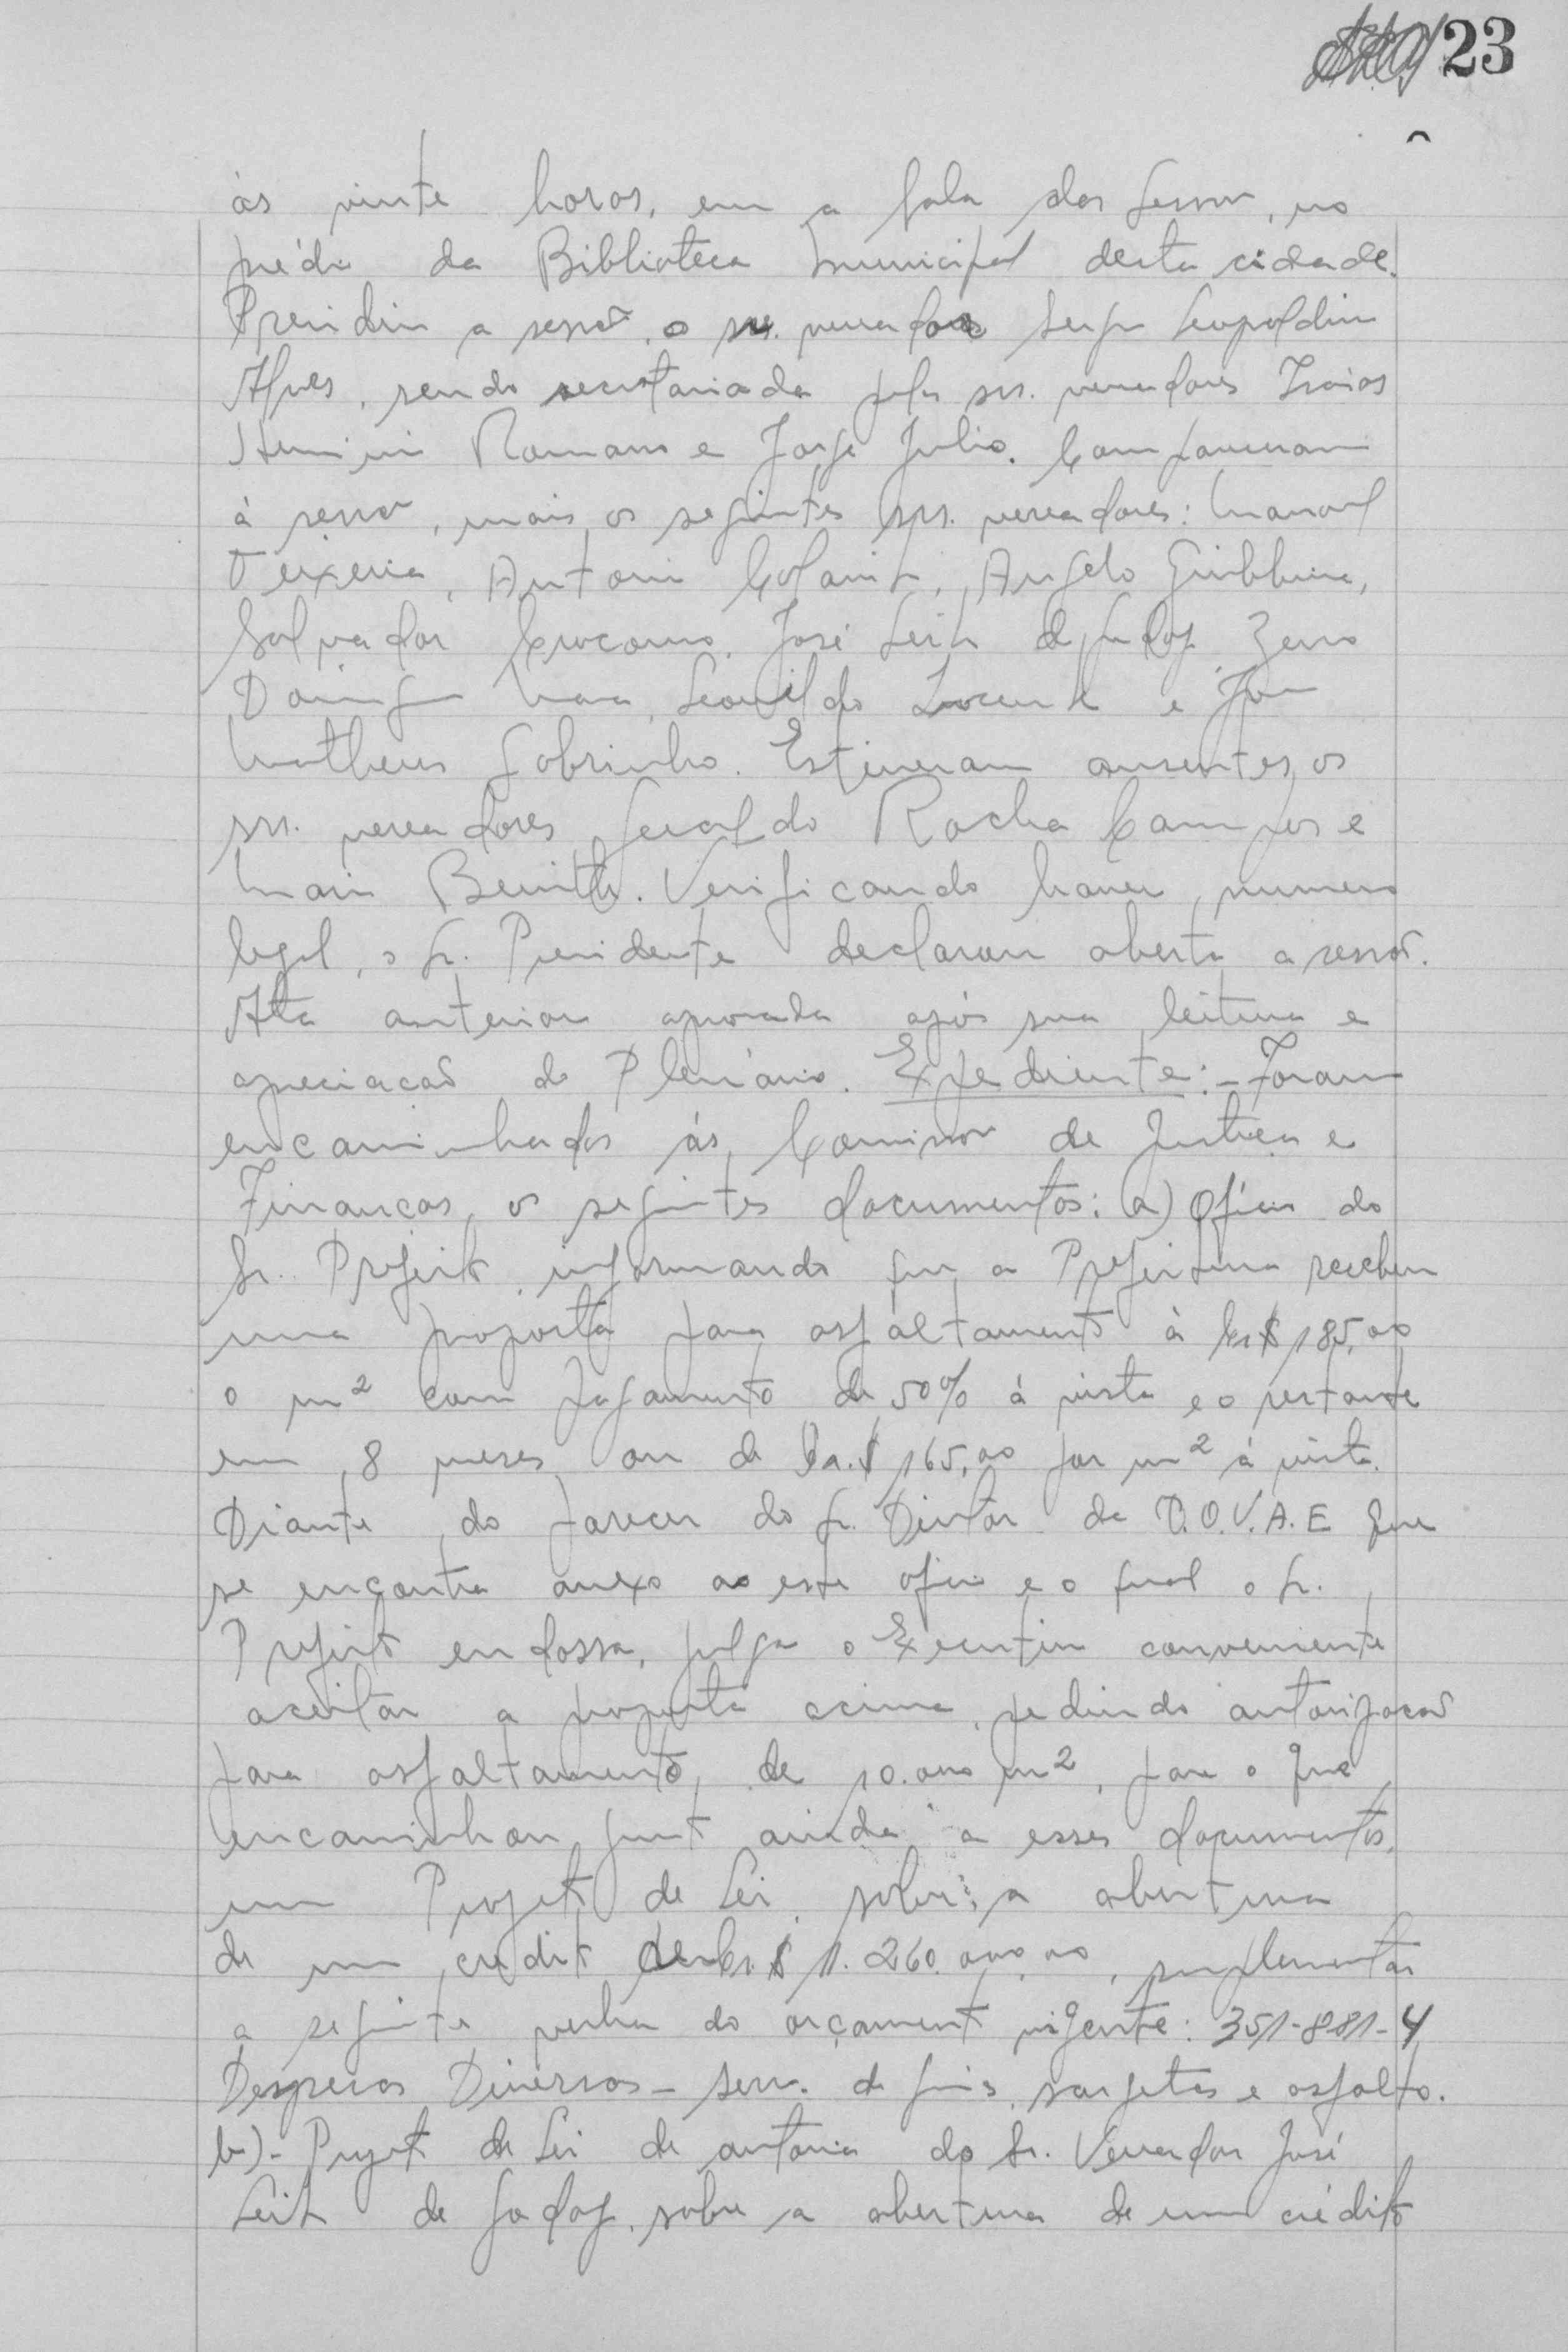 23
às vinte horas, em a sala das sessões, no
prédio da Biblioteca Municipal desta cidade.
Presidiu a sessão, o sr. vereador Sergio Leopoldino
Alves, sendo secretariada pelos srs. vereadores Isaias
Herminio Romano e Jorge Julio. Compareceram
à sessão, mais os seguintes srs. vereadores: Manoel
Teixeira, Antonio Colanito, Angelo
Salvador Crocomo, José Leite de Godoy, Zeno
Domingos Maia, Leonildo e João
Matheus Sobrinho. Estiveram ausentes, os
srs. vereadores Geraldo Rocha Campos e
Mario Benitto. Verificando haver numero
legal, o Sr. Presidente declarou aberta a sessão.
Ata anterior aprovada após sua leitura e
apreciação do Plenário. Expediente: - Foram
encaminhados às Comissões de Justiça e
Finanças os seguintes documentos: a) Oficio do
Sr. Prefeito, informando que a Prefeitura recebeu
uma proposta para asfaltamento à Cr$ 185,00
o m² com pagamento de 50% à vista e o restante
em 8 meses ou de Cr.$ 165,00 por m² à vista.
Diante do parecer do Sr. Diretor da D.O.V.A.E que
se encontra anexo ao este oficio e o qual o Sr.
Prefeito endossa, julga o Executivo conveniente
aceitar a proposta acima, pedindo autorização
para asfaltamento, de 10.000 m², para o que
encaminhou junto ainda a esses documentos,
um Projeto de Lei, sobre a abertura
de um credito de Cr.$ 1.260.000,00, suplementar
a seguinte verba do orçamento vigente: 351-881-4
Despesas Diversas - serv. de guias, sarjetas e asfalto.
b) - Projeto de Lei de autoria do Sr. Vereador José
Leite de Godoy, sobre a abertura de um crédito